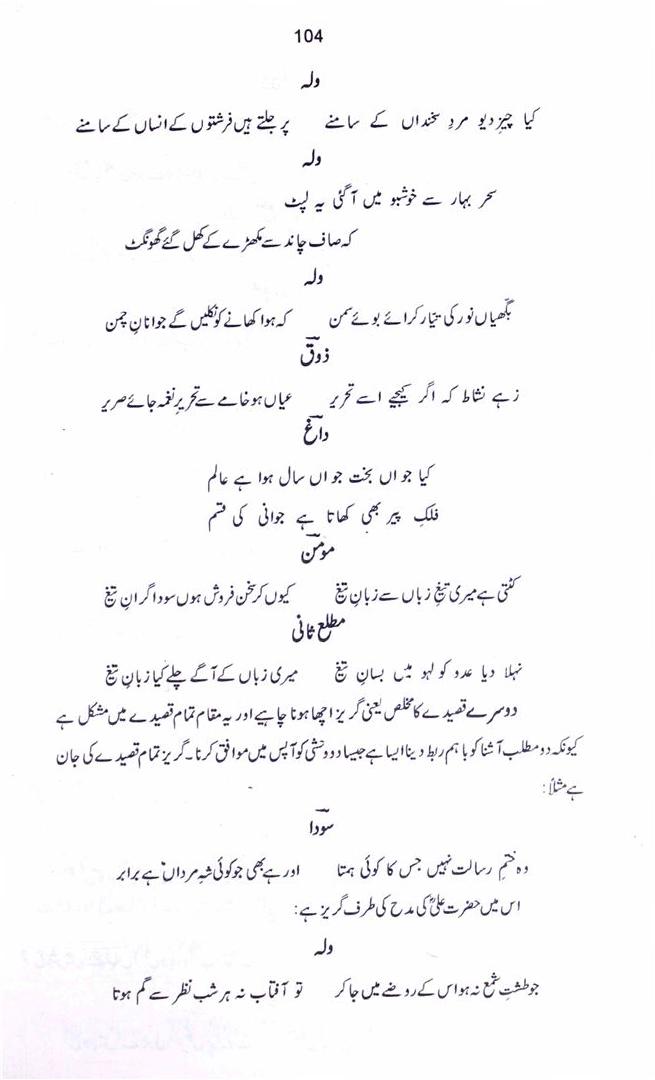 104
ولہ
کیا چیز دیو مردِ سخنداں کے سامنے پر جلتے ہیں فرشتوں کے انساں کے سامنے
ولہ
سحر بہار سے خوشبو میں آ گئی یہ لپٹ
کہ صاف چاند سے مکھڑے کے کھل گئے گھونگٹ
ولہ
بگھیاں نور کی تیّار کرائے بوئے سمن کہ ہوا کھانے کو نکلیں گے جوانانِ چمن
ذوق
زہے نشاط کہ اگر کیجیے اسے تحریر عیاں ہو خامے سے تحریرِ نغمہ جائے صریر
داغ
کیا جواں بخت جواں سال ہوا ہے عالم
فلکِ پیر بھی کھاتا ہے جوانی کی قسم
مومن
کٹتی ہے میری تیغِ زباں سے زبانِ تیغ کیوں کر سخن فروش ہوں سوداگرانِ تیغ
مطلع ثانی
نہلا دیا عدو کو لہو میں بسانِ تیغ میری زباں کے آگے چلے کیا زبانِ تیغ
دوسرے قصیدے کا مخلص یعنی گریز اچھا ہونا چاہیے اور یہ مقام تمام قصیدے میں مشکل ہے
کیونکہ دو مطلب آشنا کو باہم ربط دینا ایسا ہے جیسا دو وحشی کو آپس میں موافق کرنا۔ گریز تمام قصیدے کی جان
ہے مثلاً:
سودا
وہ ختمِ رسالت نہیں جس کا کوئی ہمتا اور ہے بھی جو کوئی شہِ مرداں ہے برابر
اس میں حضرت علیؓ کی مدح کی طرف گریز ہے:
ولہ
جو طشتِ شمع نہ ہو اس کے روضے میں جا کر تو آفتاب نہ ہر شب نظر سے گم ہوتا